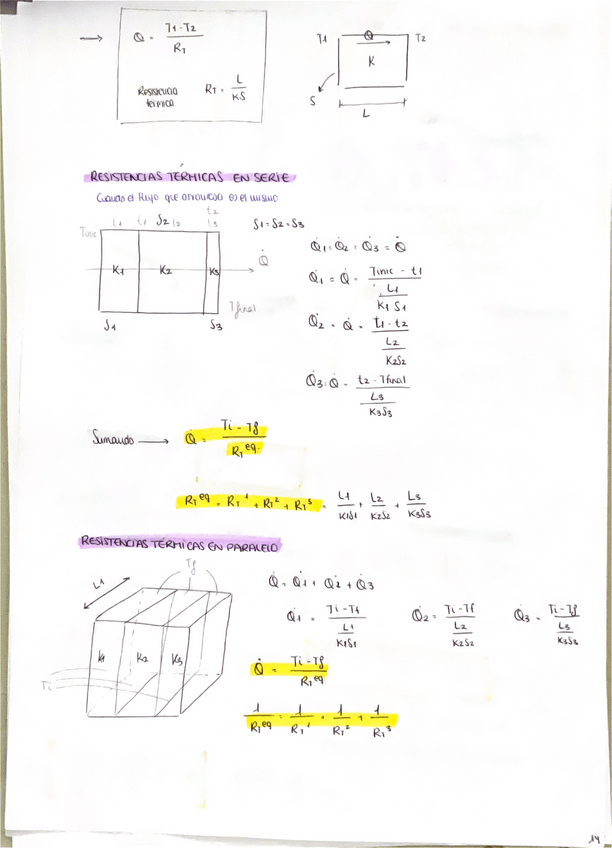 → Q̇ = (T1 - T2) / RT
Resistencia térmica RT = L / KS
T1 Q̇ T2
K
S
L
RESISTENCIAS TÉRMICAS EN SERIE
Cuando el flujo que atraviesa es el mismo
L1 t1 S2 L2 t2 L3
S1 = S2 = S3
Tinic
K1 K2 K3
Q̇
Tfinal
S1 S3
Q̇1 = Q̇2 = Q̇3 = Q̇
Q̇1 = Q̇ = (Tinic - t1) / (L1 / K1 S1)
Q̇2 = Q̇ = (t1 - t2) / (L2 / K2S2)
Q̇3 = Q̇ = (t2 - Tfinal) / (L3 / K3S3)
Sumando → Q̇ = (Ti - Tf) / RT^eq.
RT^eq = RT^1 + RT^2 + RT^3 = L1 / K1S1 + L2 / K2S2 + L3 / K3S3
RESISTENCIAS TÉRMICAS EN PARALELO
Tf
L1
K1 K2 K3
Ti
Q̇ = Q̇1 + Q̇2 + Q̇3
Q̇1 = (Ti - Tf) / (L1 / K1S1) Q̇2 = (Ti - Tf) / (L2 / K2S2) Q̇3 = (Ti - Tf) / (L3 / K3S3)
Q̇ = (Ti - Tf) / RT^eq
1 / RT^eq = 1 / RT^1 + 1 / RT^2 + 1 / RT^3
14